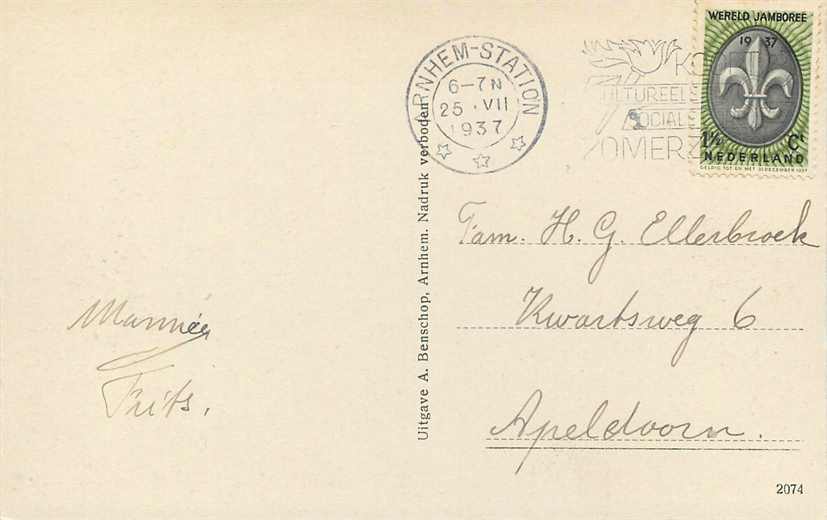 WERELD JAMBOREE
19 37
1½ Ct
NEDERLAND
GELDIG TOT EN MET 31 DECEMBER 1937
ARNHEM-STATION
6-7N
25 VII
1937
KO
LTUREELE
SOCIALE
ZOMERZ
Uitgave A. Benschop, Arnhem. Nadruk verboden
Fam. H. G. Ellerbroek
Kwartsweg 6
Apeldoorn.
Frits.
2074